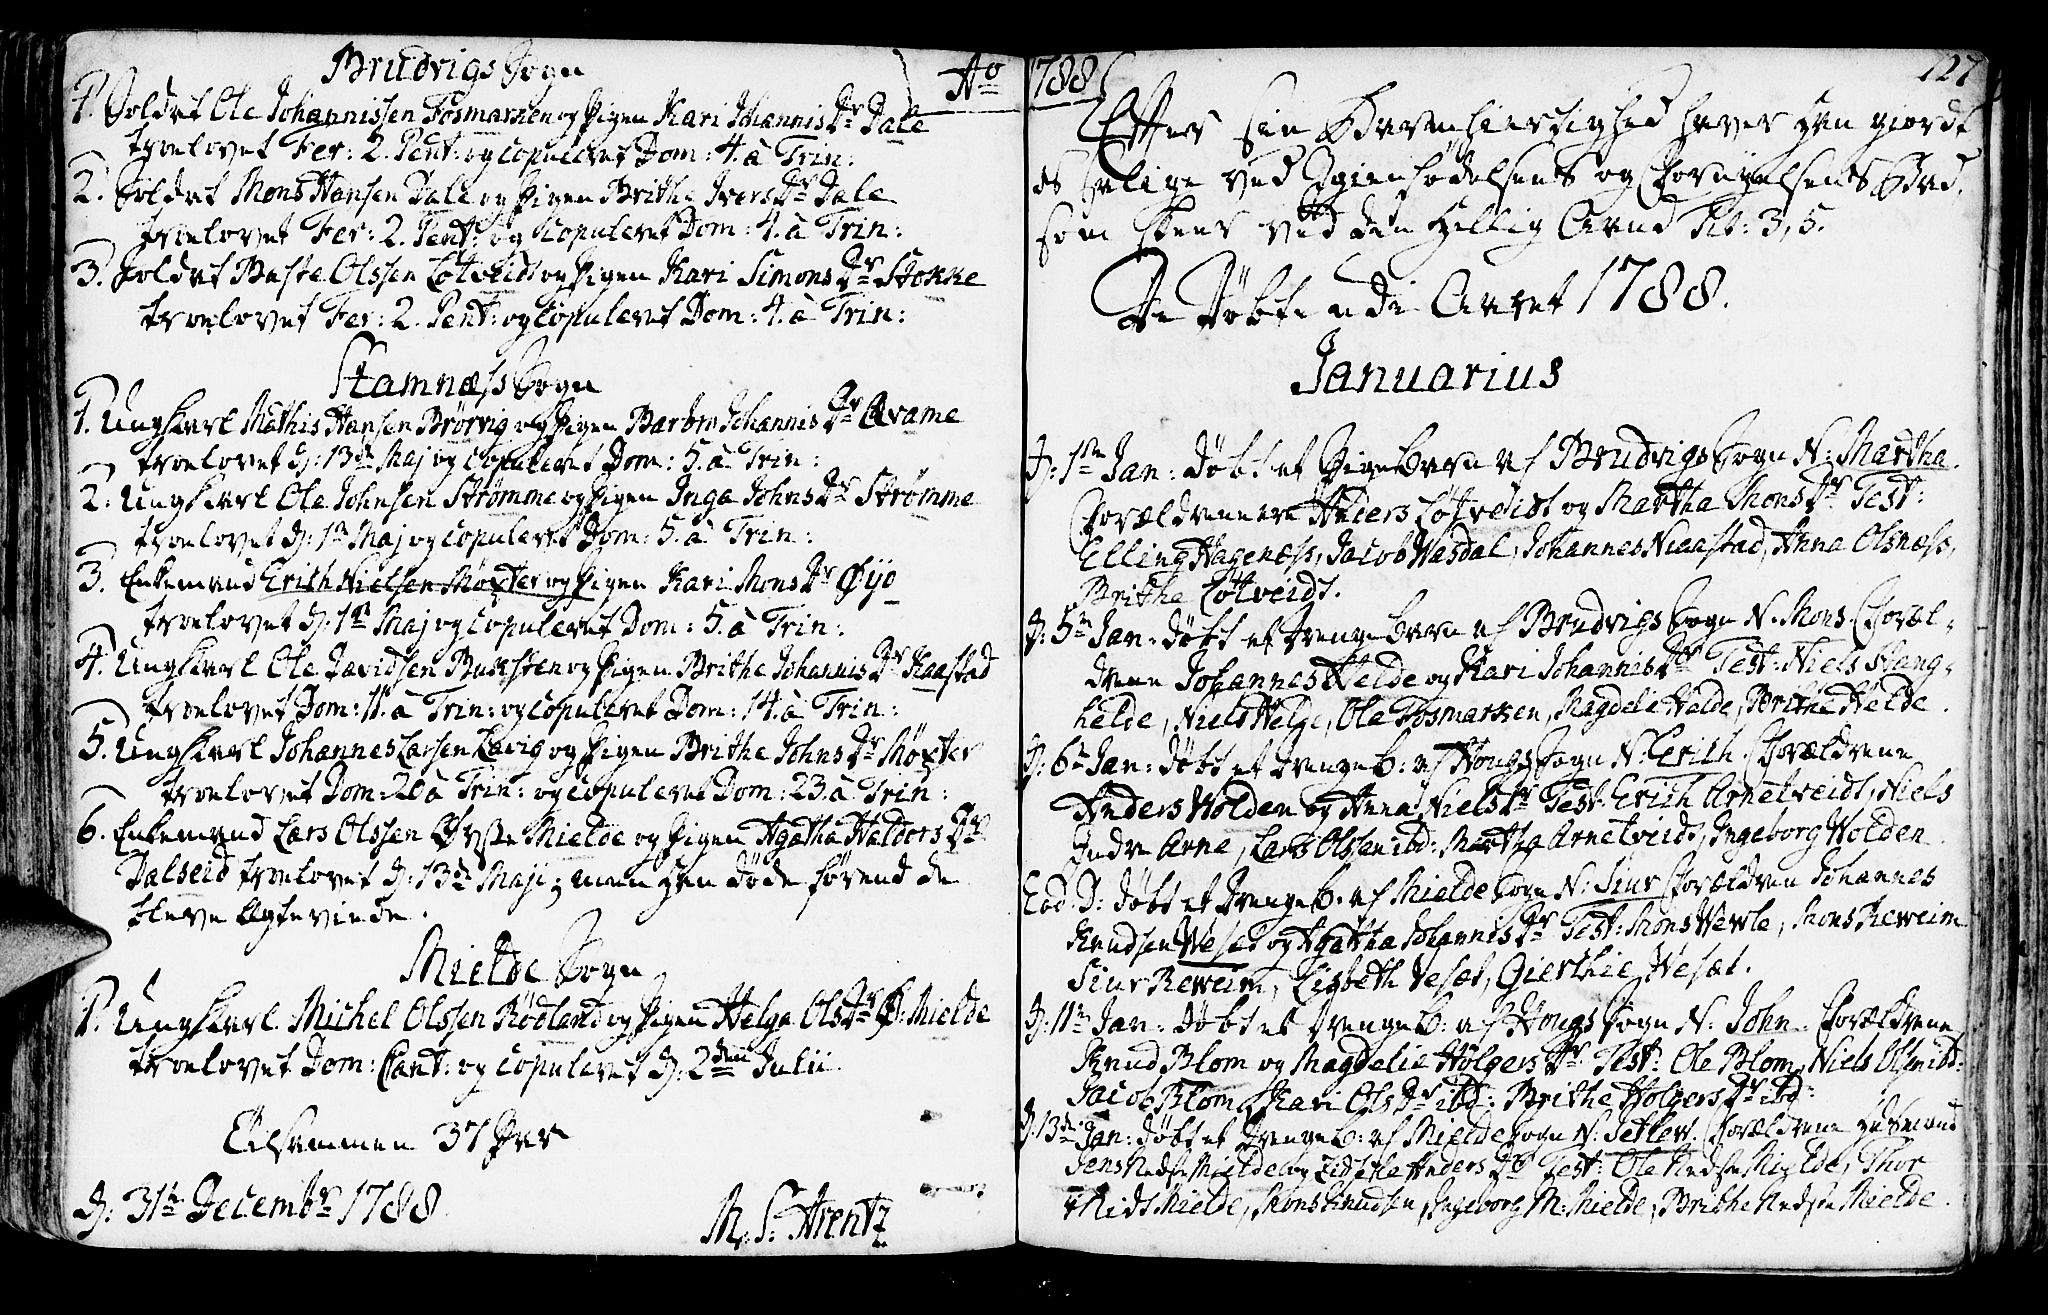 Brudvigs Sogn
1. Soldat Ole Johannissen Fosmarken og Pigen Kari Johannis Dr Dale
troelovet Fer: 2. Pent: og copuleret Dom: 4. à Trin:
2. Soldat Mons Hansen Dale og Pigen Brithe Ivers Dr Dale
troelovet Fer: 2. Pent: og copuleret Dom: 4. à Trin:
3. Soldat Baste Olssen Løtveidt og Pigen Kari Simons Dr Stokke
troelovet Fer: 2. Pent: og Copuleret Dom: 4. à Trin:
Stamnæss Sogn
1. Ungkarl Mathis Hansen Brørvig og Pigen Barbro Johannis Dr Qvame
troelovet d: 13de Maj og Copuleret Dom: 5. à Trin:
2. Ungkarl Ole Johnsen Strømme og Pigen Inga Johns Dr Strømme
troelovet d: 1ste Maj og copuleret Dom: 5. à Trin:
3. Enkemand Erich Nielsen Møxter og Pigen Kari Mons Dr Øijo
troelovet d: 1ste Maj og copuleret Dom: 5. à Trin:
4. Ungkarl Ole Davidsen Bursten og Pigen Brithe Johannis Dr Kaastad
troelovet Dom: 11. à Trin: og copuleret Dom: 14. à Trin:
5. Ungkarl Johannes Larsen Lavig og Pigen Brithe Johns Dr Møxter
troelovet Dom: 20 à Trin: og copuleret Dom: 23. à Trin:
6. Enkemand Lars Olssen Øvste Mielde og Pigen Agatha Haldors Dr
Dalseid troelovet d: 13de Maji; men han døde førend de
bleve Egteviede.
Mielde Sogn
1. Ungkarl Michel Olssen Rødland og Pigen Helga Ols Dr Ø: Mielde
troelovet Dom: Cant: og copuleret d: 2den Julii.
Tilsammen 37 Par
d: 31te Decembr 1788
M. S. Arentz
Ao 1788
127
Efter sin Barmhiertighed haver han giordt
os salige ved Igienfødelsens og Fornyelsens Bad,
som skeer ved den Hellig Aand Tit: 3,5.
De Døbte udi Aaret 1788.
Januarius
D: 1ste Jan: døbt et Pigebarn af Brudvigs Sogn N: Martha.
Forældrene Anders Løtveidt og Martha Mons Dr Test:
Elling Hagenæss, Jacob Wasdal, Johannes Niaastad, Anna Olsnæss,
Brithe Løtveidt.
D: 5te Jan: døbt et Drengebarn af Brudvigs Sogn N. Mons. Foræl-
drene Johannes Helde og Kari Johannis Dr Test: Niels Stang-
helde, Niels Helge, Ole Fosmarken, Magdelie Helde, Brithe Helde.
D: 6te Jan: døbt et Drengeb: af Hougs Sogn N: Erich. Forældrene
Anders Wolden og Anna Niels Dr Test: Erich Arnetveidt, Niels
Indre Arne, Lars Olssen ibd: Martha Arnetveidt, Ingeborg Wolden.
Eod. D: døbt et Drengeb. af Mielde Sogn N: Siur Forældrene Johannes
Knudsen Wesæt og Agatha Johannis Dr Test: Mons Wewle, Mons Reweim
Siur Reweim, Lisbeth Vesæt, Gierthie Wesæt.
D: 11te Jan: døbt et Drengeb: af Hougs Sogn N: John. Forældrene
Knud Blom og Magdelie Holgers Dr Test: Ole Blom, Niels Olssen ibd:
Jacob Blom, Kari Ols Dr ibd: Brithe Holgers Dr ibd:
D. 13de Jan: døbt et Drengeb: af Mielde Sogn N: Detlev. Forældrene Husmand
Jens Mielde og Anders Dr Test: Ole Mielde, Thor
Mielde, Mons Knudsen, Ingeborg M: Mielde, Brithe Mielde.